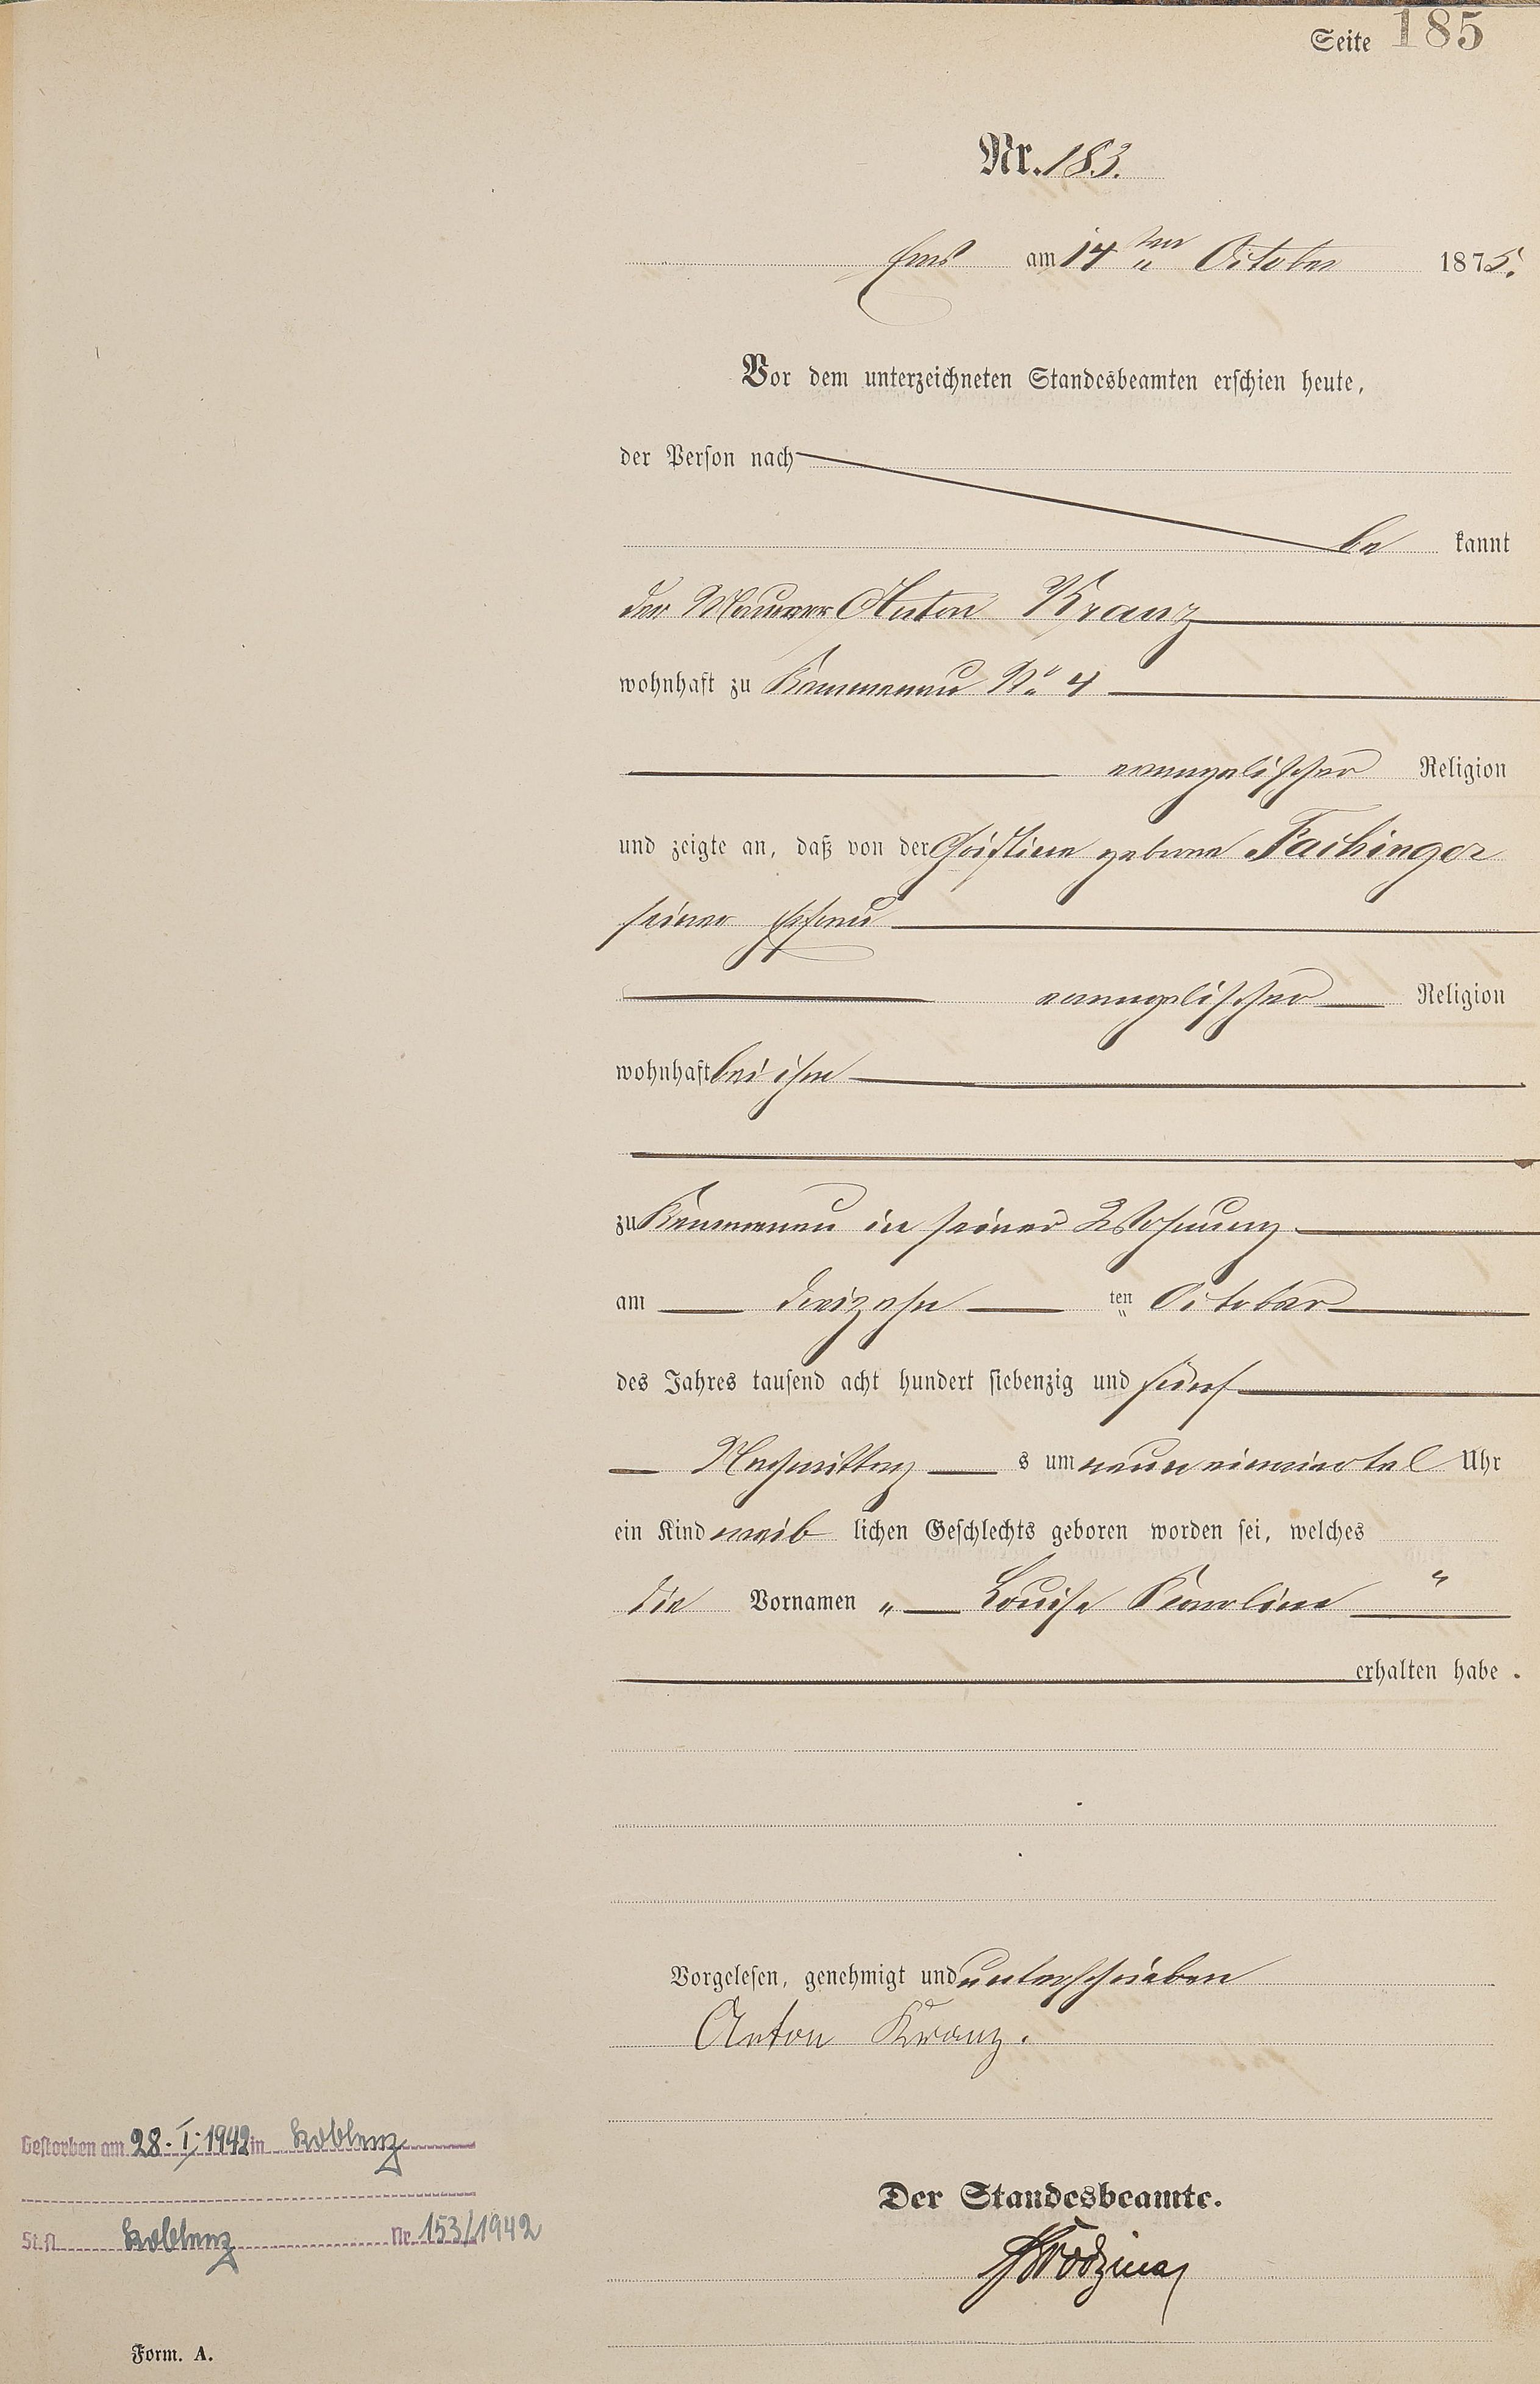 Seite 185
Nr. 183.
Ems am 14ten October 1875.
Vor dem unterzeichneten Standesbeamten erschien heute,
der Person nach
be kannt
der Maurer Anton Kranz
wohnhaft zu Kemmenau No 4
evangelischer Religion
und zeigte an, daß von der Christiane geborne Fachinger
seiner Ehefrau
evangelischer Religion
wohnhaft bei ihm
zu Kemmenau in seiner Wohnung
am dreizehn ten October
des Jahres tausend acht hundert siebenzig und fünf
Nachmittag s um neun einviertel Uhr
ein Kind weib lichen Geschlechts geboren worden sei, welches
die Vornamen " Louise Karoline "
erhalten habe.
Vorgelesen, genehmigt und unterschrieben
Anton Kranz.
Gestorben am 28.I.1942 in Koblenz
Der Standesbeamte.
St.A. Koblenz Nr. 153/1942
Form. A.